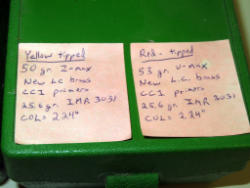 Yellow tipped
50 gr. Z-max
New LC brass
CCI primers
25.6 gr. IMR 3031
COL= 2.24"
Red- tipped
53 gr. V-max
New L.C. brass
CCI primers
25.6 gr. IMR 3031
COL= 2.24"